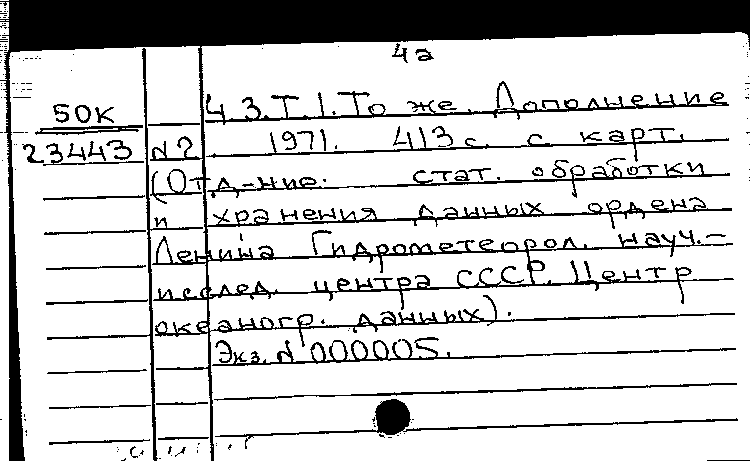 4а
50К
23443
Ч.3.Т.1.То же. Дополнение
N2. 1971. 413 с. с карт.
(Отд-ние. стат. обработки
и хранения данных ордена
Ленина Гидрометеорол. науч.-
исслед. центра СССР. Центр
океаногр. данных).
Экз. N 000005.